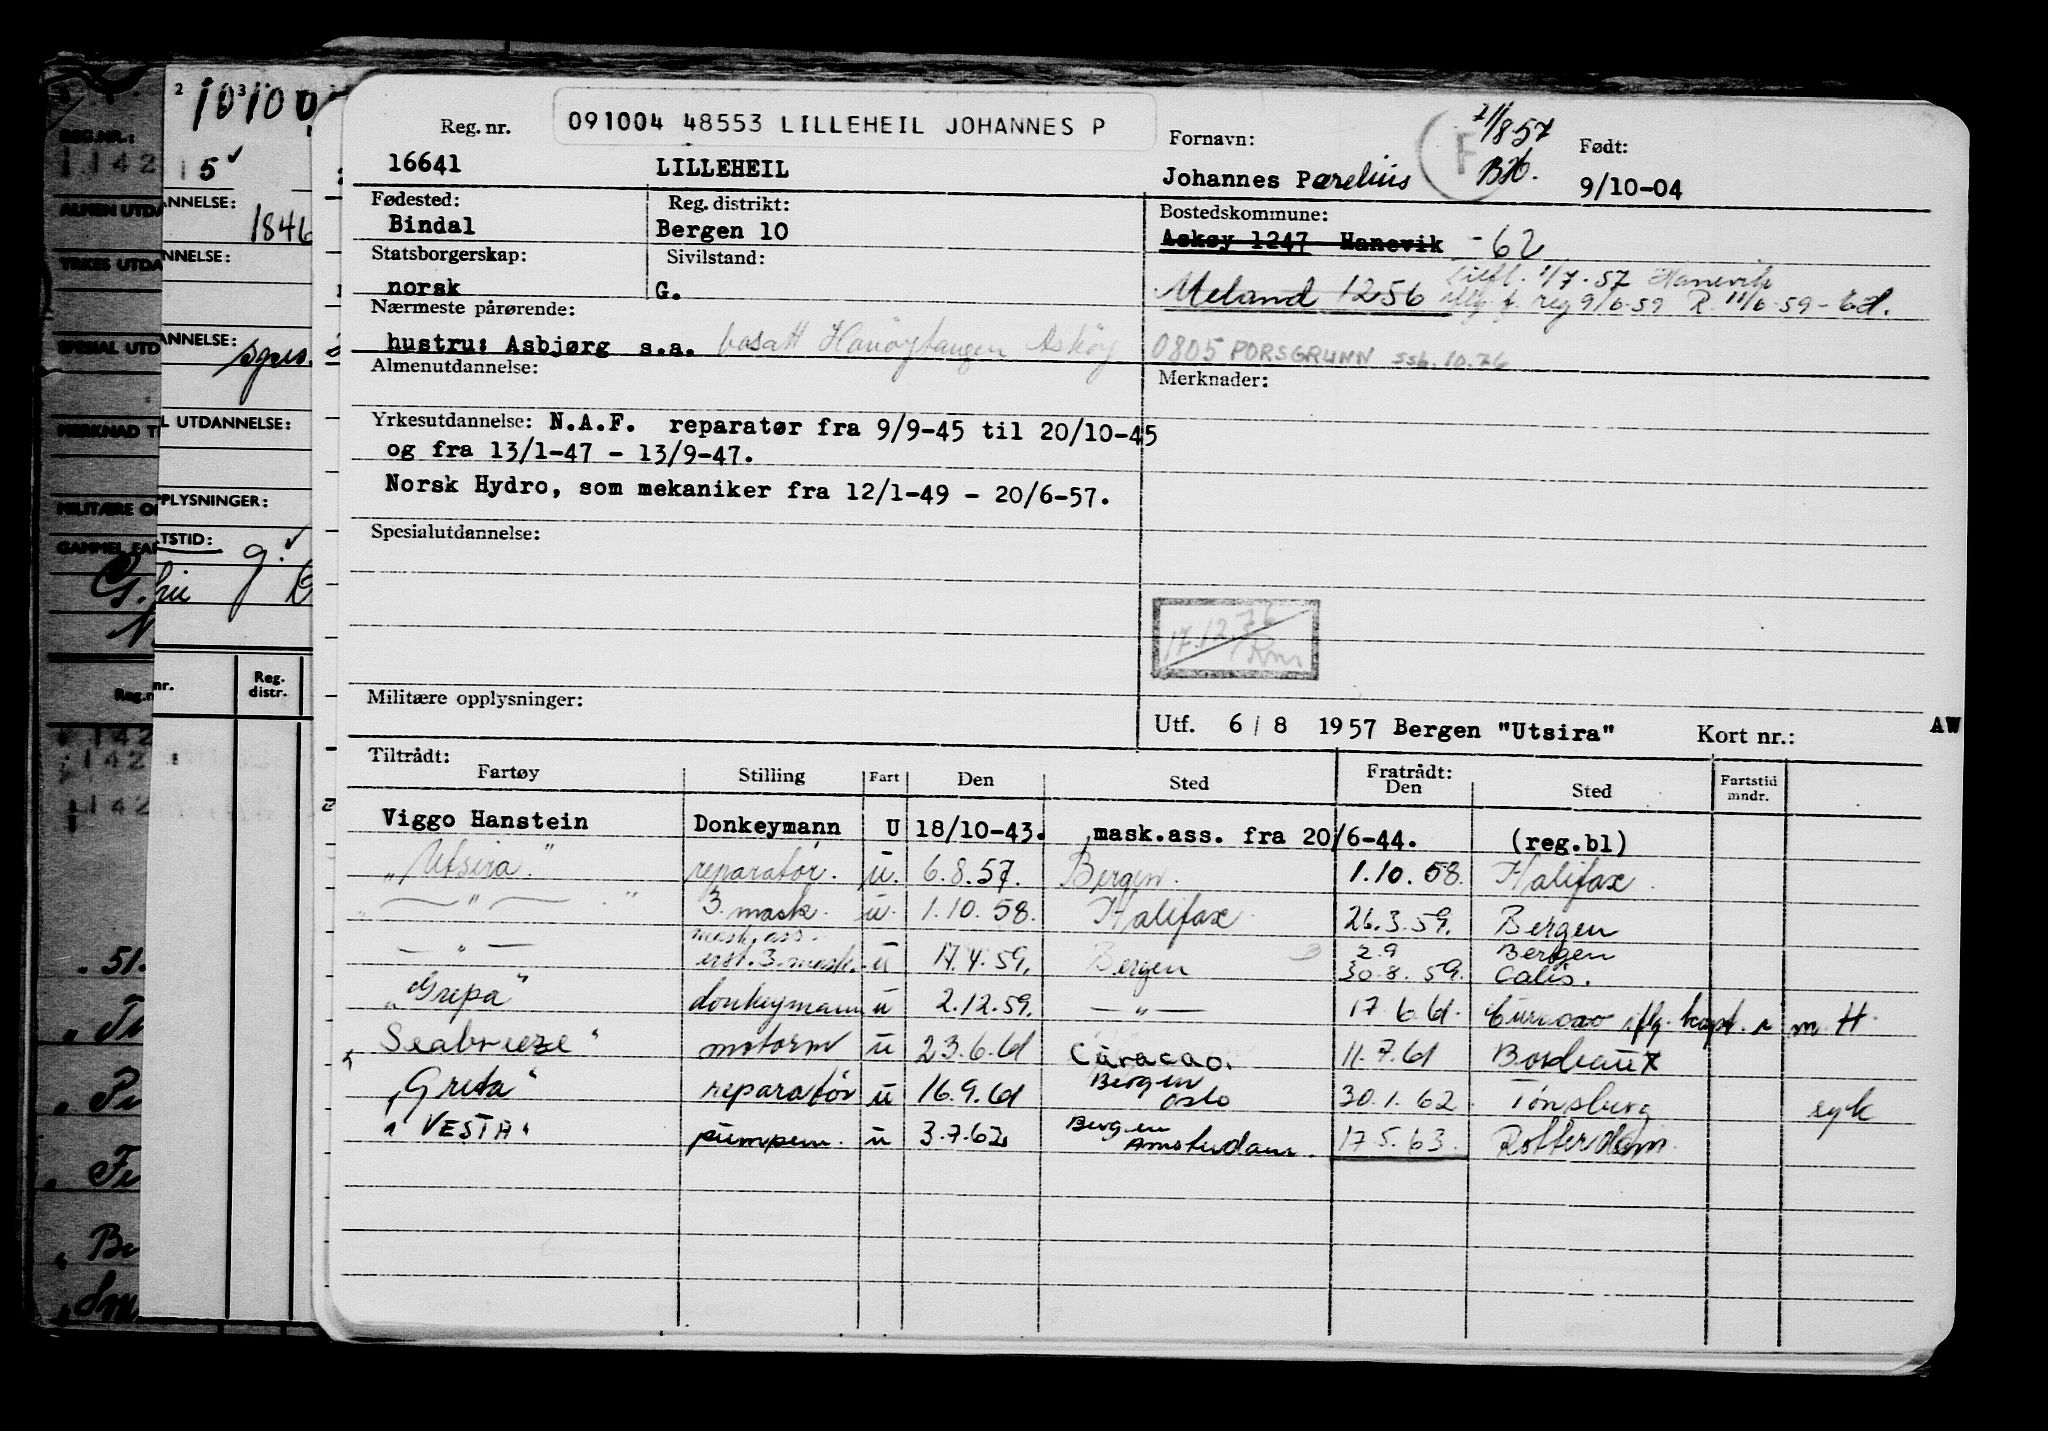 091004 48553 LILLEHEIL JOHANNES P
Reg. nr.
16641
LILLEHEIL
Fornavn:
Johannes Parelius
F
7/8-57
BH.
Født:
9/10-04
Fødested:
Bindal
Reg. distrikt:
Bergen 10
Bostedskommune:
Askøy 1247 Hanevik -62
Statsborgerskap:
norsk
Sivilstand:
G.
1/7-57 Hanevik
Meland 1256 reg 9/6-59 R. 11/6-59-
Nærmeste pårørende:
hustru: Asbjørg s.a. bosatt Askøy
0805 PORSGRUNN ssb. 10.76
Almenutdannelse:
Merknader:
Yrkesutdannelse: N.A.F. reparatør fra 9/9-45 til 20/10-45
og fra 13/1-47 - 13/9-47.
Norsk Hydro, som mekaniker fra 12/1-49 - 20/6-57.
Spesialutdannelse:
17.12.76
Militære opplysninger:
Utf. 6/8 1957 Bergen "Utsira" Kort nr.: AW
Tiltrådt:
Fartøy Stilling Fart Den Sted Fratrådt: Den Sted Fartstid mndr.
Viggo Hanstein Donkeymann U 18/10-43. mask.ass. fra 20/6-44. (reg.bl)
"Utsira" reparatør. u. 6.8.57. Bergen. 1.10.58. Halifax.
" — " — " 3 mask. u. 1.10.58. Halifax. 26.3.59. Bergen
mask.ass. 2.9 Bergen
— " — erst. 3. mask. u 17.4.59. Bergen 30.8.59. Calis.
"Grepa" donkeymann u 2.12.59. — " — 17.6.61. Curacao iflg. kapt. r m. H.
Seabreeze" motorm u 23.6.61 Curacao. 11.7.61 Bordeaux
"Greta" reparatør u 16.9.61 Bergen Oslo 30.1.62 Tønsberg syk
"VESTA" pumpem. u 3.7.62 Bergen Amsterdam. 17.5.63. Rotterdam.
REG.NR.:
142
2
3
10100
5
ANNELSE:
1846
ALMEN UTDA
YRKES UTDA
NNELSE:
SPESIAL UTD
ANNELSE:
MERKNAD T
L UTDANNELSE:
MILITÆRE O
PLYSNINGER:
GAMMEL FA
TSTID:
g.
Reg.n
nr.
Reg. distr.
142
142
142
51.